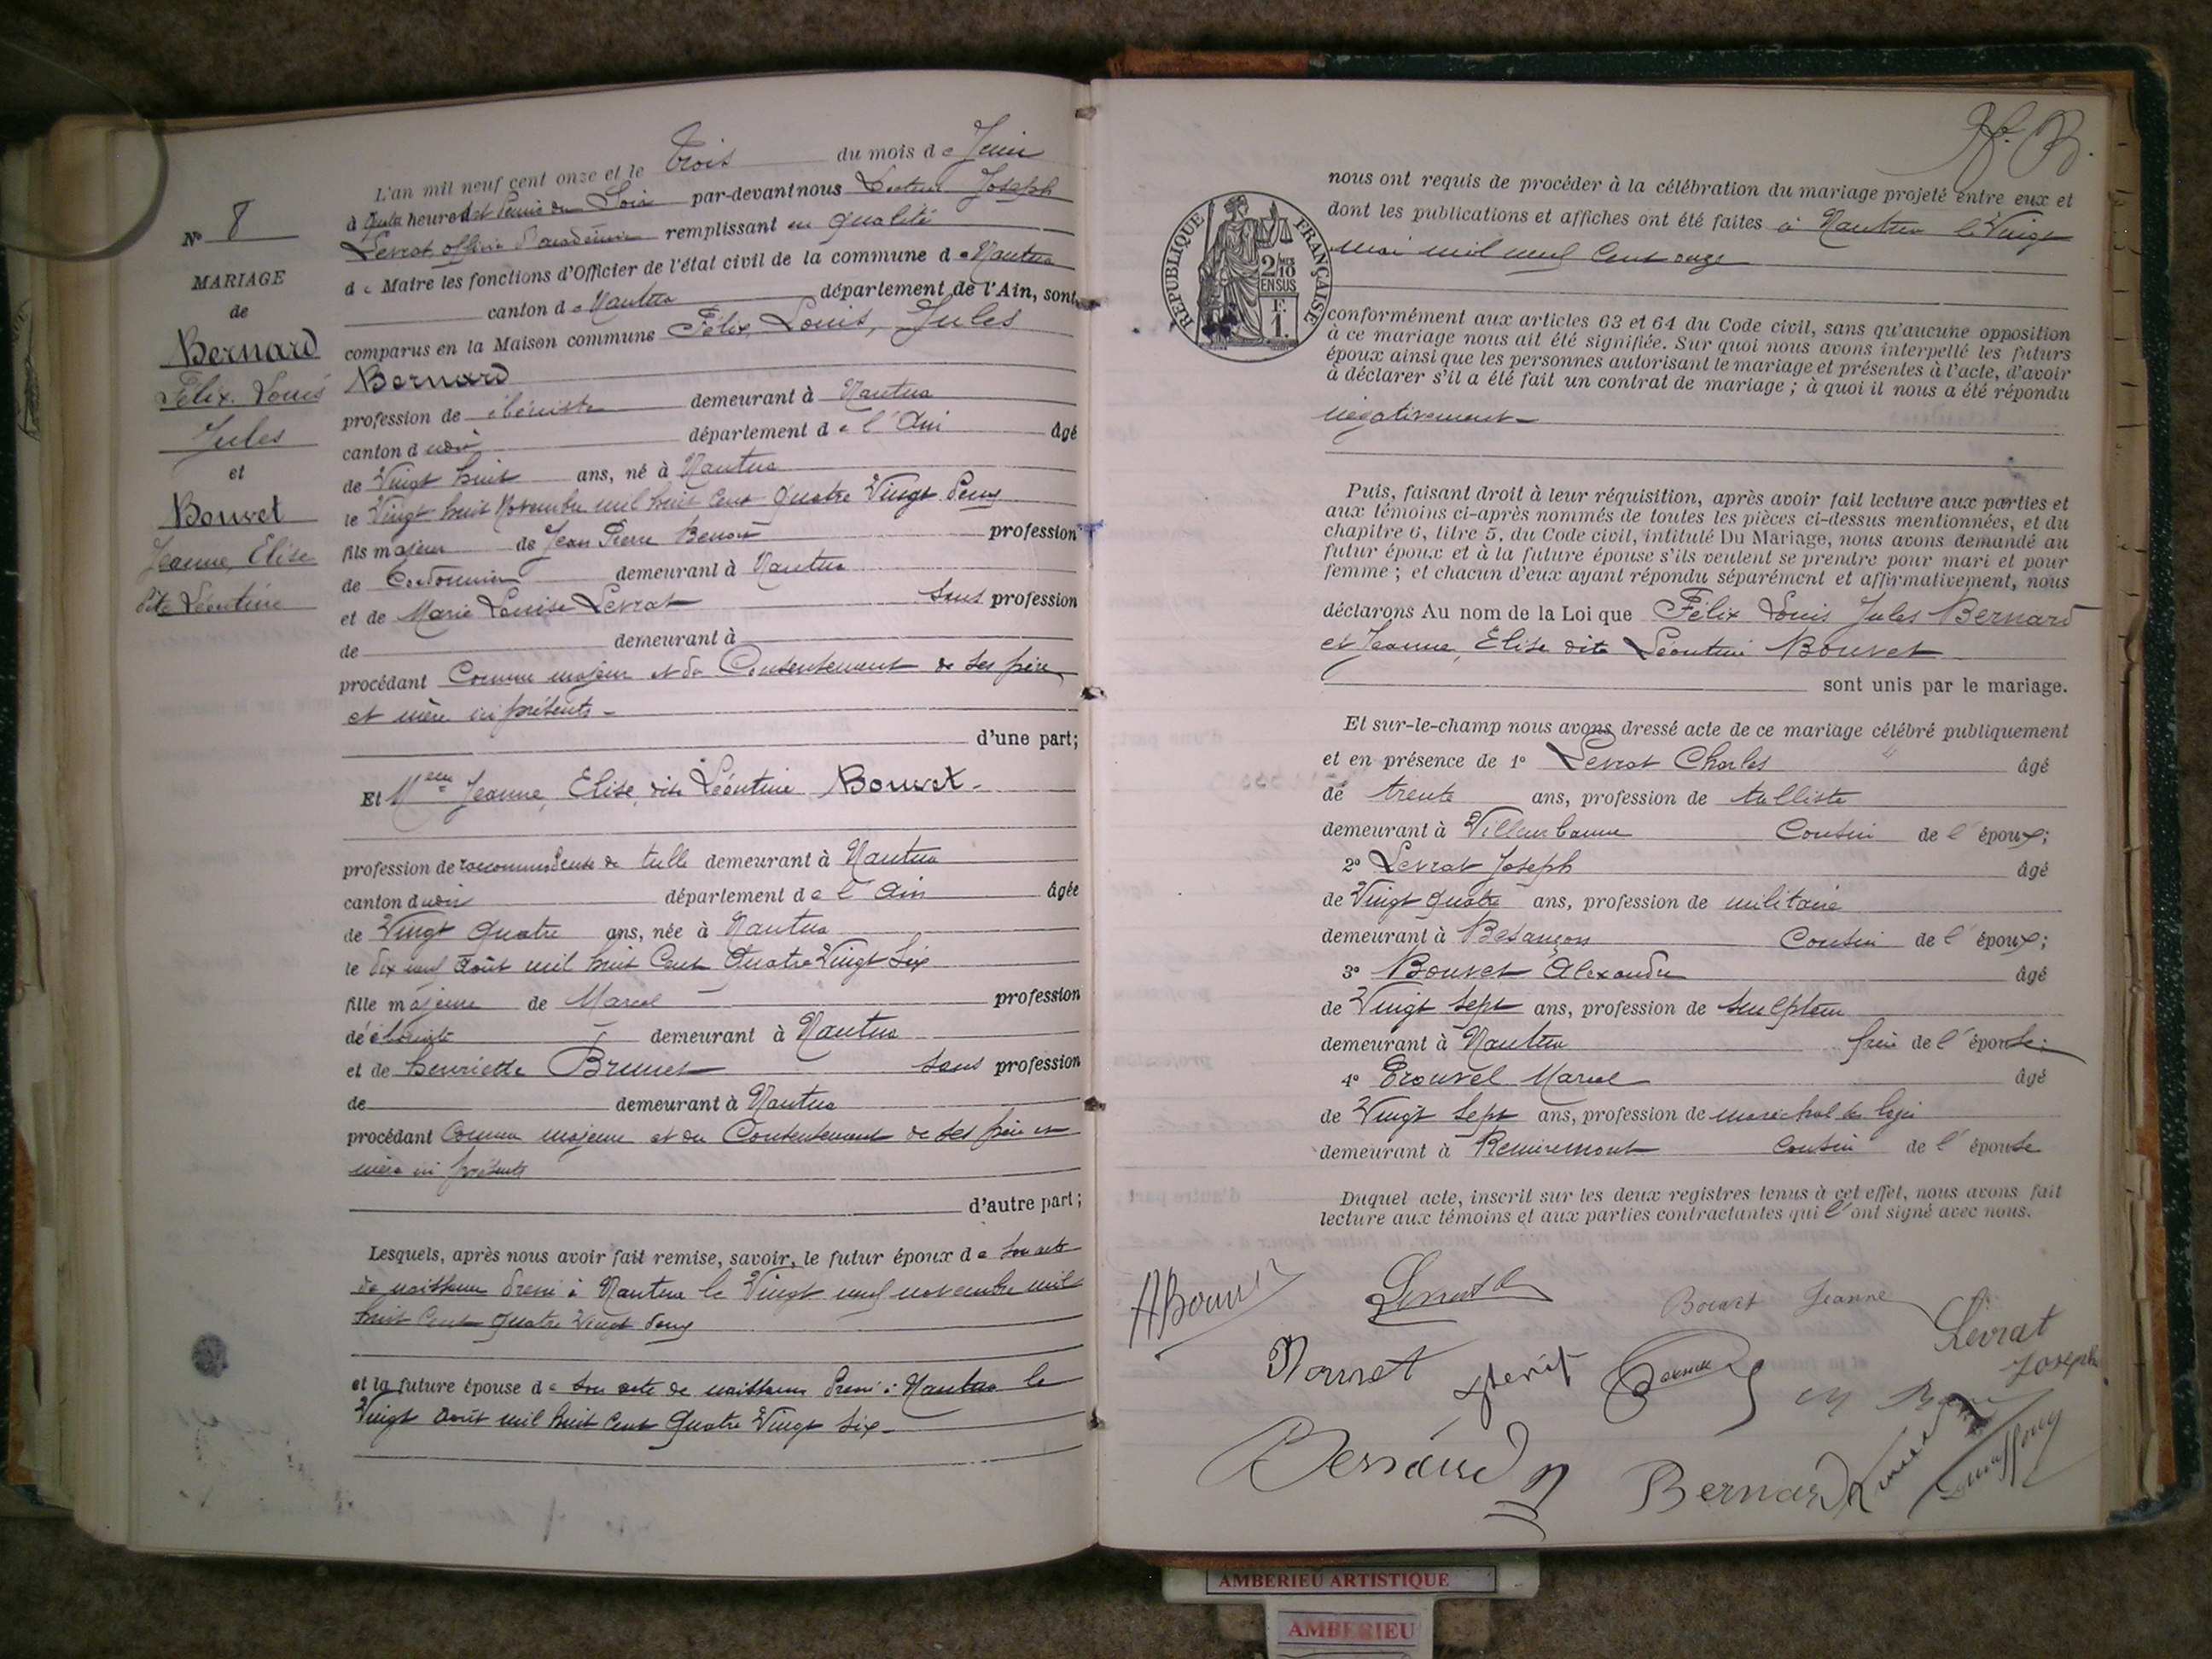 N° 8
MARIAGE
de
Bernard
Félix. Louis
Jules
et
Bouvet
Jeanne, Elise
dite Léontine
L'an mil neuf cent onze et le Trois du mois de Juin
à heures et Demie du Soir par-devant nous Docteur Joseph
Levrat officier d'académie remplissant en qualité
de Maire les fonctions d'Officier de l'état civil de la commune de Nantua
canton de Nantua département de l'Ain, sont
comparus en la Maison commune Félix, Louis, Jules
Bernard
profession de ébéniste demeurant à Nantua
canton dudit département de l'Ain âgé
de Vingt huit ans, né à Nantua
le Vingt huit Novembre mil huit Cent Quatre Vingt Deux
fils majeur de Jean Pierre Benoit profession
de Cordonnier demeurant à Nantua
et de Marie Louise Levrat sans profession
de demeurant à
procédant Comme majeur et du Consentement de ses père
et mère ici présents
d'une part;
Et Melle Jeanne, Elise, dite Léontine Bouvet.
profession de raccommodeuse de tulle demeurant à Nantua
canton dudit département de l'Ain âgée
de Vingt Quatre ans, née à Nantua
le Dix neuf Août mil huit Cent Quatre Vingt Six
fille majeure de Marcel profession
de ébéniste demeurant à Nantua
et de henriette Brunet sans profession
de demeurant à Nantua
procédant Comme majeure et du Consentement de ses père et
mère ici présents
d'autre part;
Lesquels, après nous avoir fait remise, savoir, le futur époux de son acte
de naissance dressé à Nantua le Vingt neuf novembre mil
huit Cent Quatre Vingt deux
et la future épouse de son acte de naissance dressé à Nantua le
Vingt août mil huit Cent Quatre Vingt Six
nous ont requis de procéder à la célébration du mariage projeté entre eux et
dont les publications et affiches ont été faites à Nantua le Vingt
mai mil neuf Cent onze
RÉPUBLIQUE FRANÇAISE
2/10 MES EN SUS
F. 1.
conformément aux articles 63 et 64 du Code civil, sans qu'aucune opposition
à ce mariage nous ait été signifiée. Sur quoi nous avons interpellé les futurs
époux ainsi que les personnes autorisant le mariage et présentes à l'acte, d'avoir
à déclarer s'il a été fait un contrat de mariage; à quoi il nous a été répondu
négativement
Puis, faisant droit à leur réquisition, après avoir fait lecture aux parties et
aux témoins ci-après nommés de toutes les pièces ci-dessus mentionnées, et du
chapitre 6, titre 5, du Code civil, intitulé Du Mariage, nous avons demandé au
futur époux et à la future épouse s'ils veulent se prendre pour mari et pour
femme; et chacun d'eux ayant répondu séparément et affirmativement, nous
déclarons Au nom de la Loi que Félix Louis Jules Bernard
et Jeanne, Elise dite Léontine Bouvet
sont unis par le mariage.
Et sur-le-champ nous avons dressé acte de ce mariage célébré publiquement
et en présence de 1° Levrat Charles âgé
de trente ans, profession de tulliste
demeurant à Villeurbanne Cousin de l'époux;
2° Levrat Joseph âgé
de Vingt Quatre ans, profession de militaire
demeurant à Besançon Cousin de l'époux;
3° Bouvet Alexandre âgé
de Vingt Sept ans, profession de sculpteur
demeurant à Nantua frère de l'épouse;
4° Marcel âgé
de Vingt Sept ans, profession de maréchal des logis
demeurant à Remiremont Cousin de l'épouse
Duquel acte, inscrit sur les deux registres tenus à cet effet, nous avons fait
lecture aux témoins et aux parties contractantes qui l'ont signé avec nous.
Bouvet Jeanne
Levrat
Joseph
Bernard
Bernard
AMBERIEU ARTISTIQUE
AMBERIEU